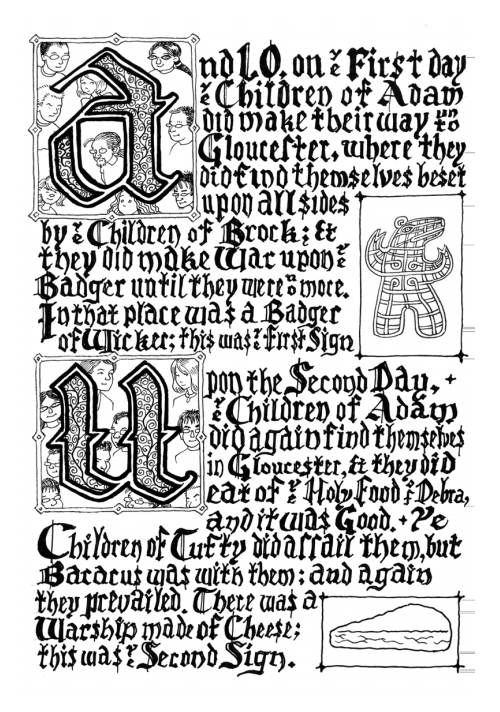 And LO, on yᵉ First day
yᵉ Children of Adam
did make their way unto
Gloucester, where they
did find themselves beset
upon all sides
by yᵉ Children of Brock; &
they did make War upon yᵉ
Badger until they were no more.
In that place was a Badger
of Wicker; this was yᵉ First Sign
Upon the Second Day,
yᵉ Children of Adam
did again find themselves
in Gloucester, & they did
eat of yᵉ Holy Food of Debra,
and it was Good. + Yᵉ
Children of Tufty did aſſail them, but
Bacacus was with them; and again
they prevailed. There was a
Warship made of Cheese;
this was yᵉ Second Sign.